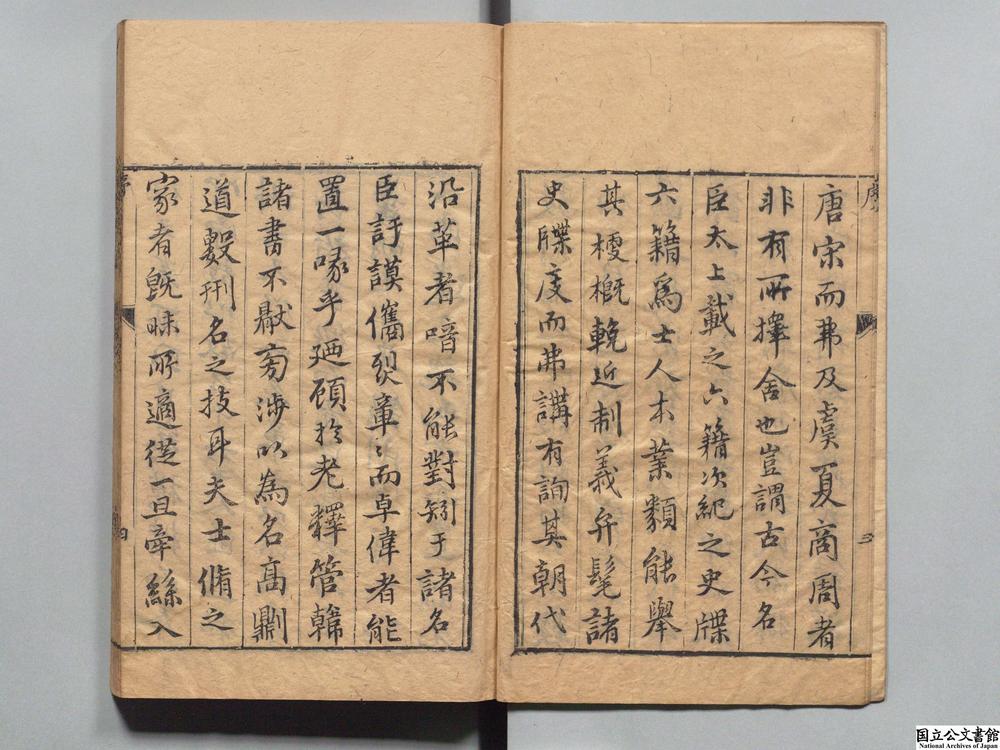 唐宋而弗及虞夏商周者
非有所擇舍也豈謂古今名
臣太上載之六籍次紀之史牒
六籍爲士人本業類能舉
其梗概輓近制義弁髦諸
史牒度而弗講有詢其朝代
沿革者喑不能對矧于諸名
臣訏謨儁烈章〻而卓偉者能
置一喙乎廼顧於老釋管韓
諸書不猒旁涉以為名高剿
道數刑名之技耳夫士脩之
家者既昧所適從一旦牽絲入
序
三
四
国立公文書館
National Archives of Japan